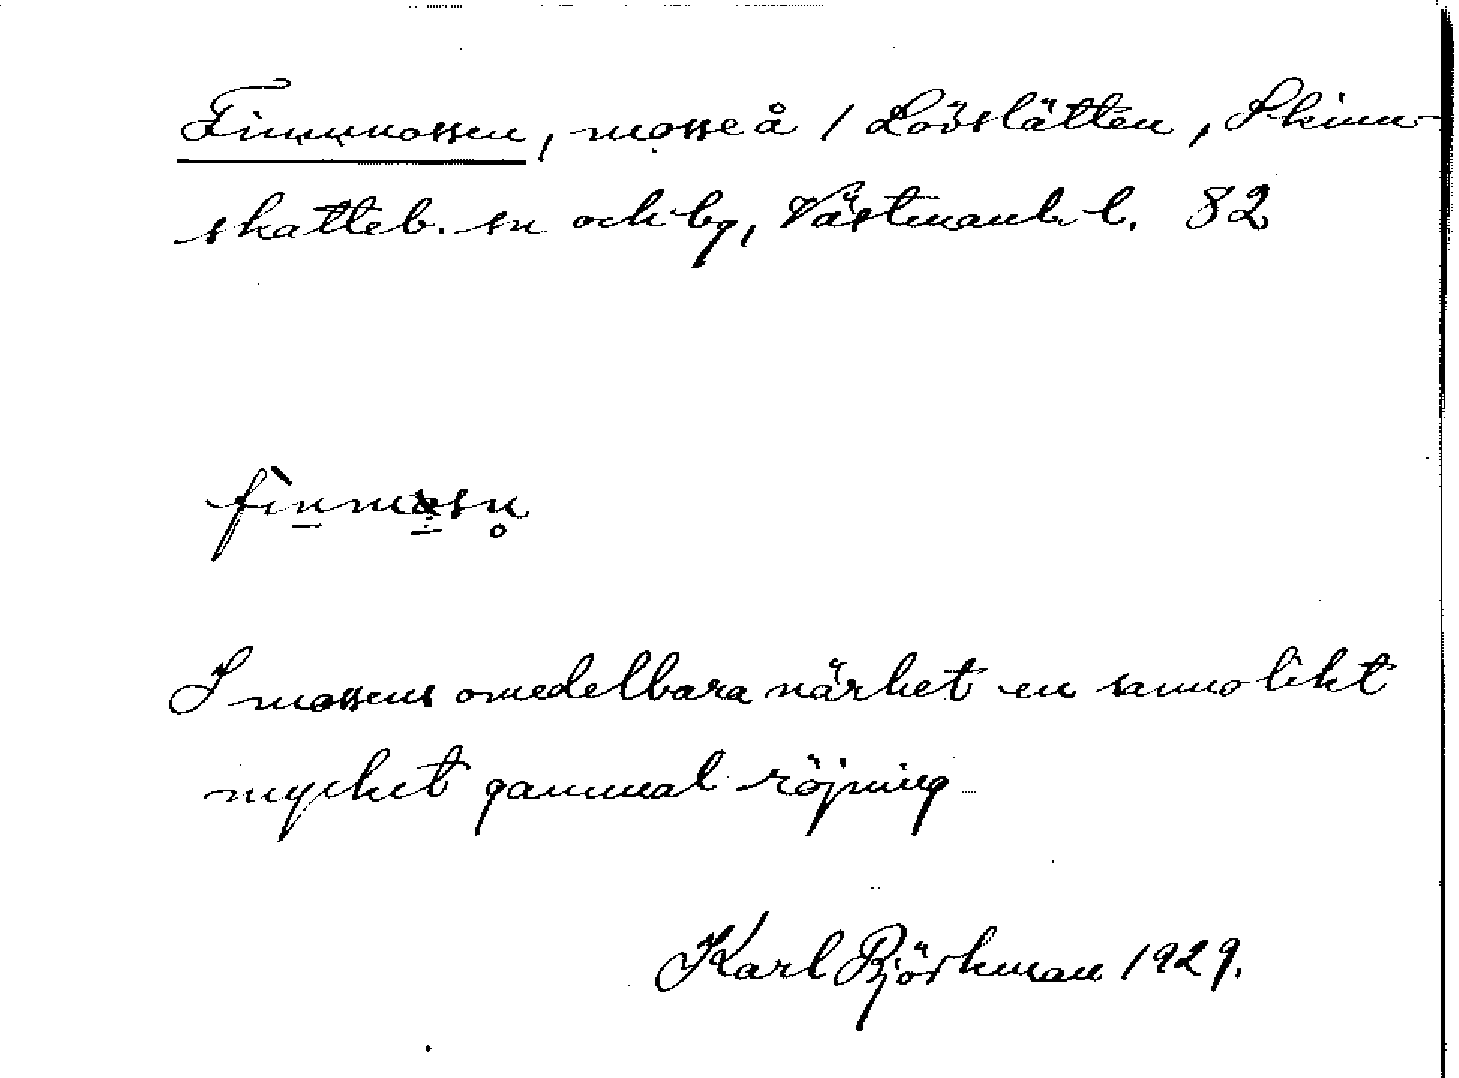 Finnmossen, mosse å / Lövslätten, Skinn-
skatteb. sn och bg, Västmanl. l. 82
I mossens omedelbara närhet en sannolikt
mycket gammal röjning
Karl Björkman 1929.